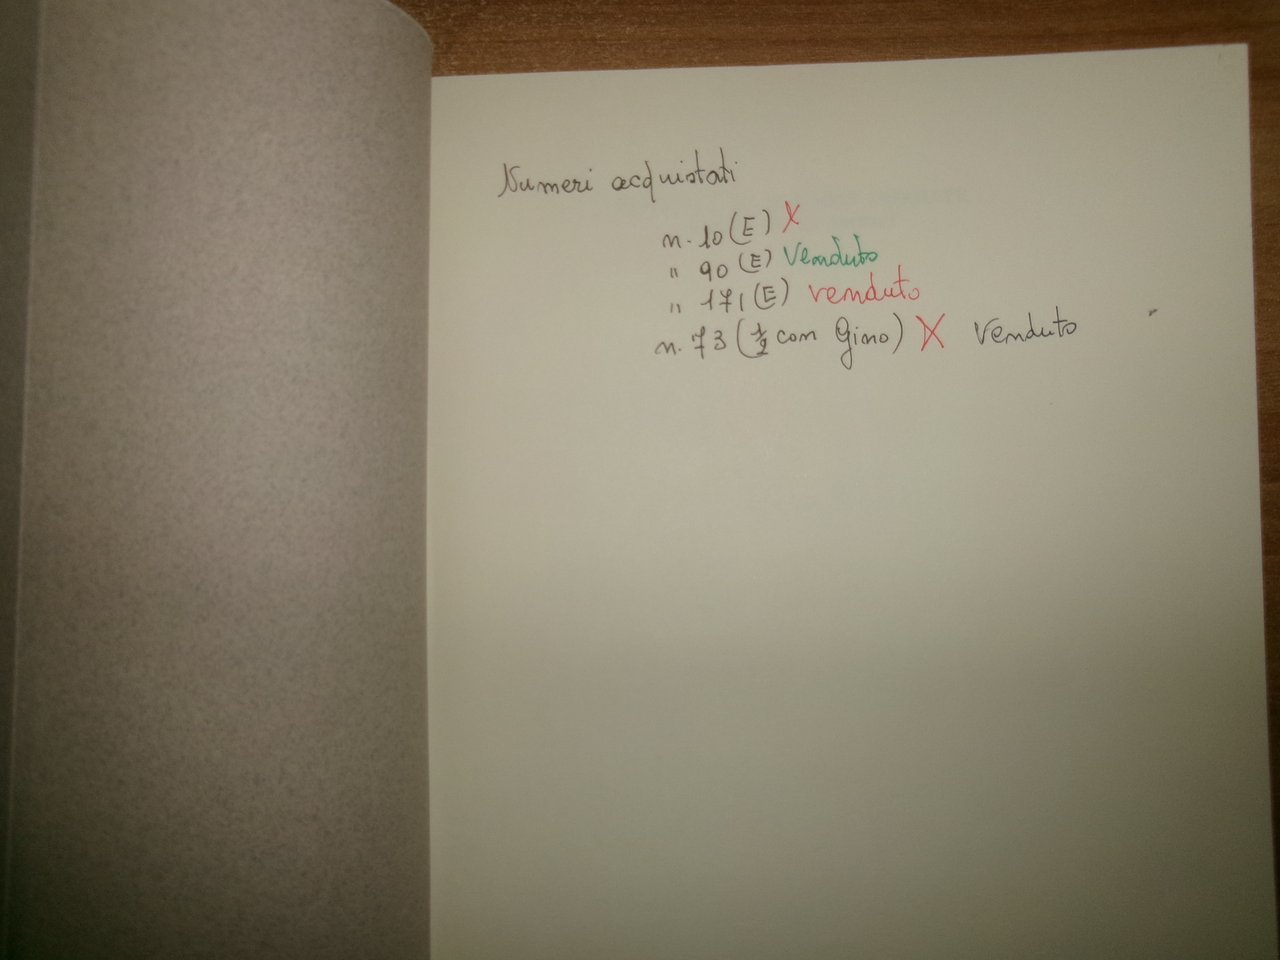 Numeri acquistati
n. 10 (E) X
" 90 (E) Venduto
" 171 (E) venduto
n. 73 (1/2 con Gino) X Venduto